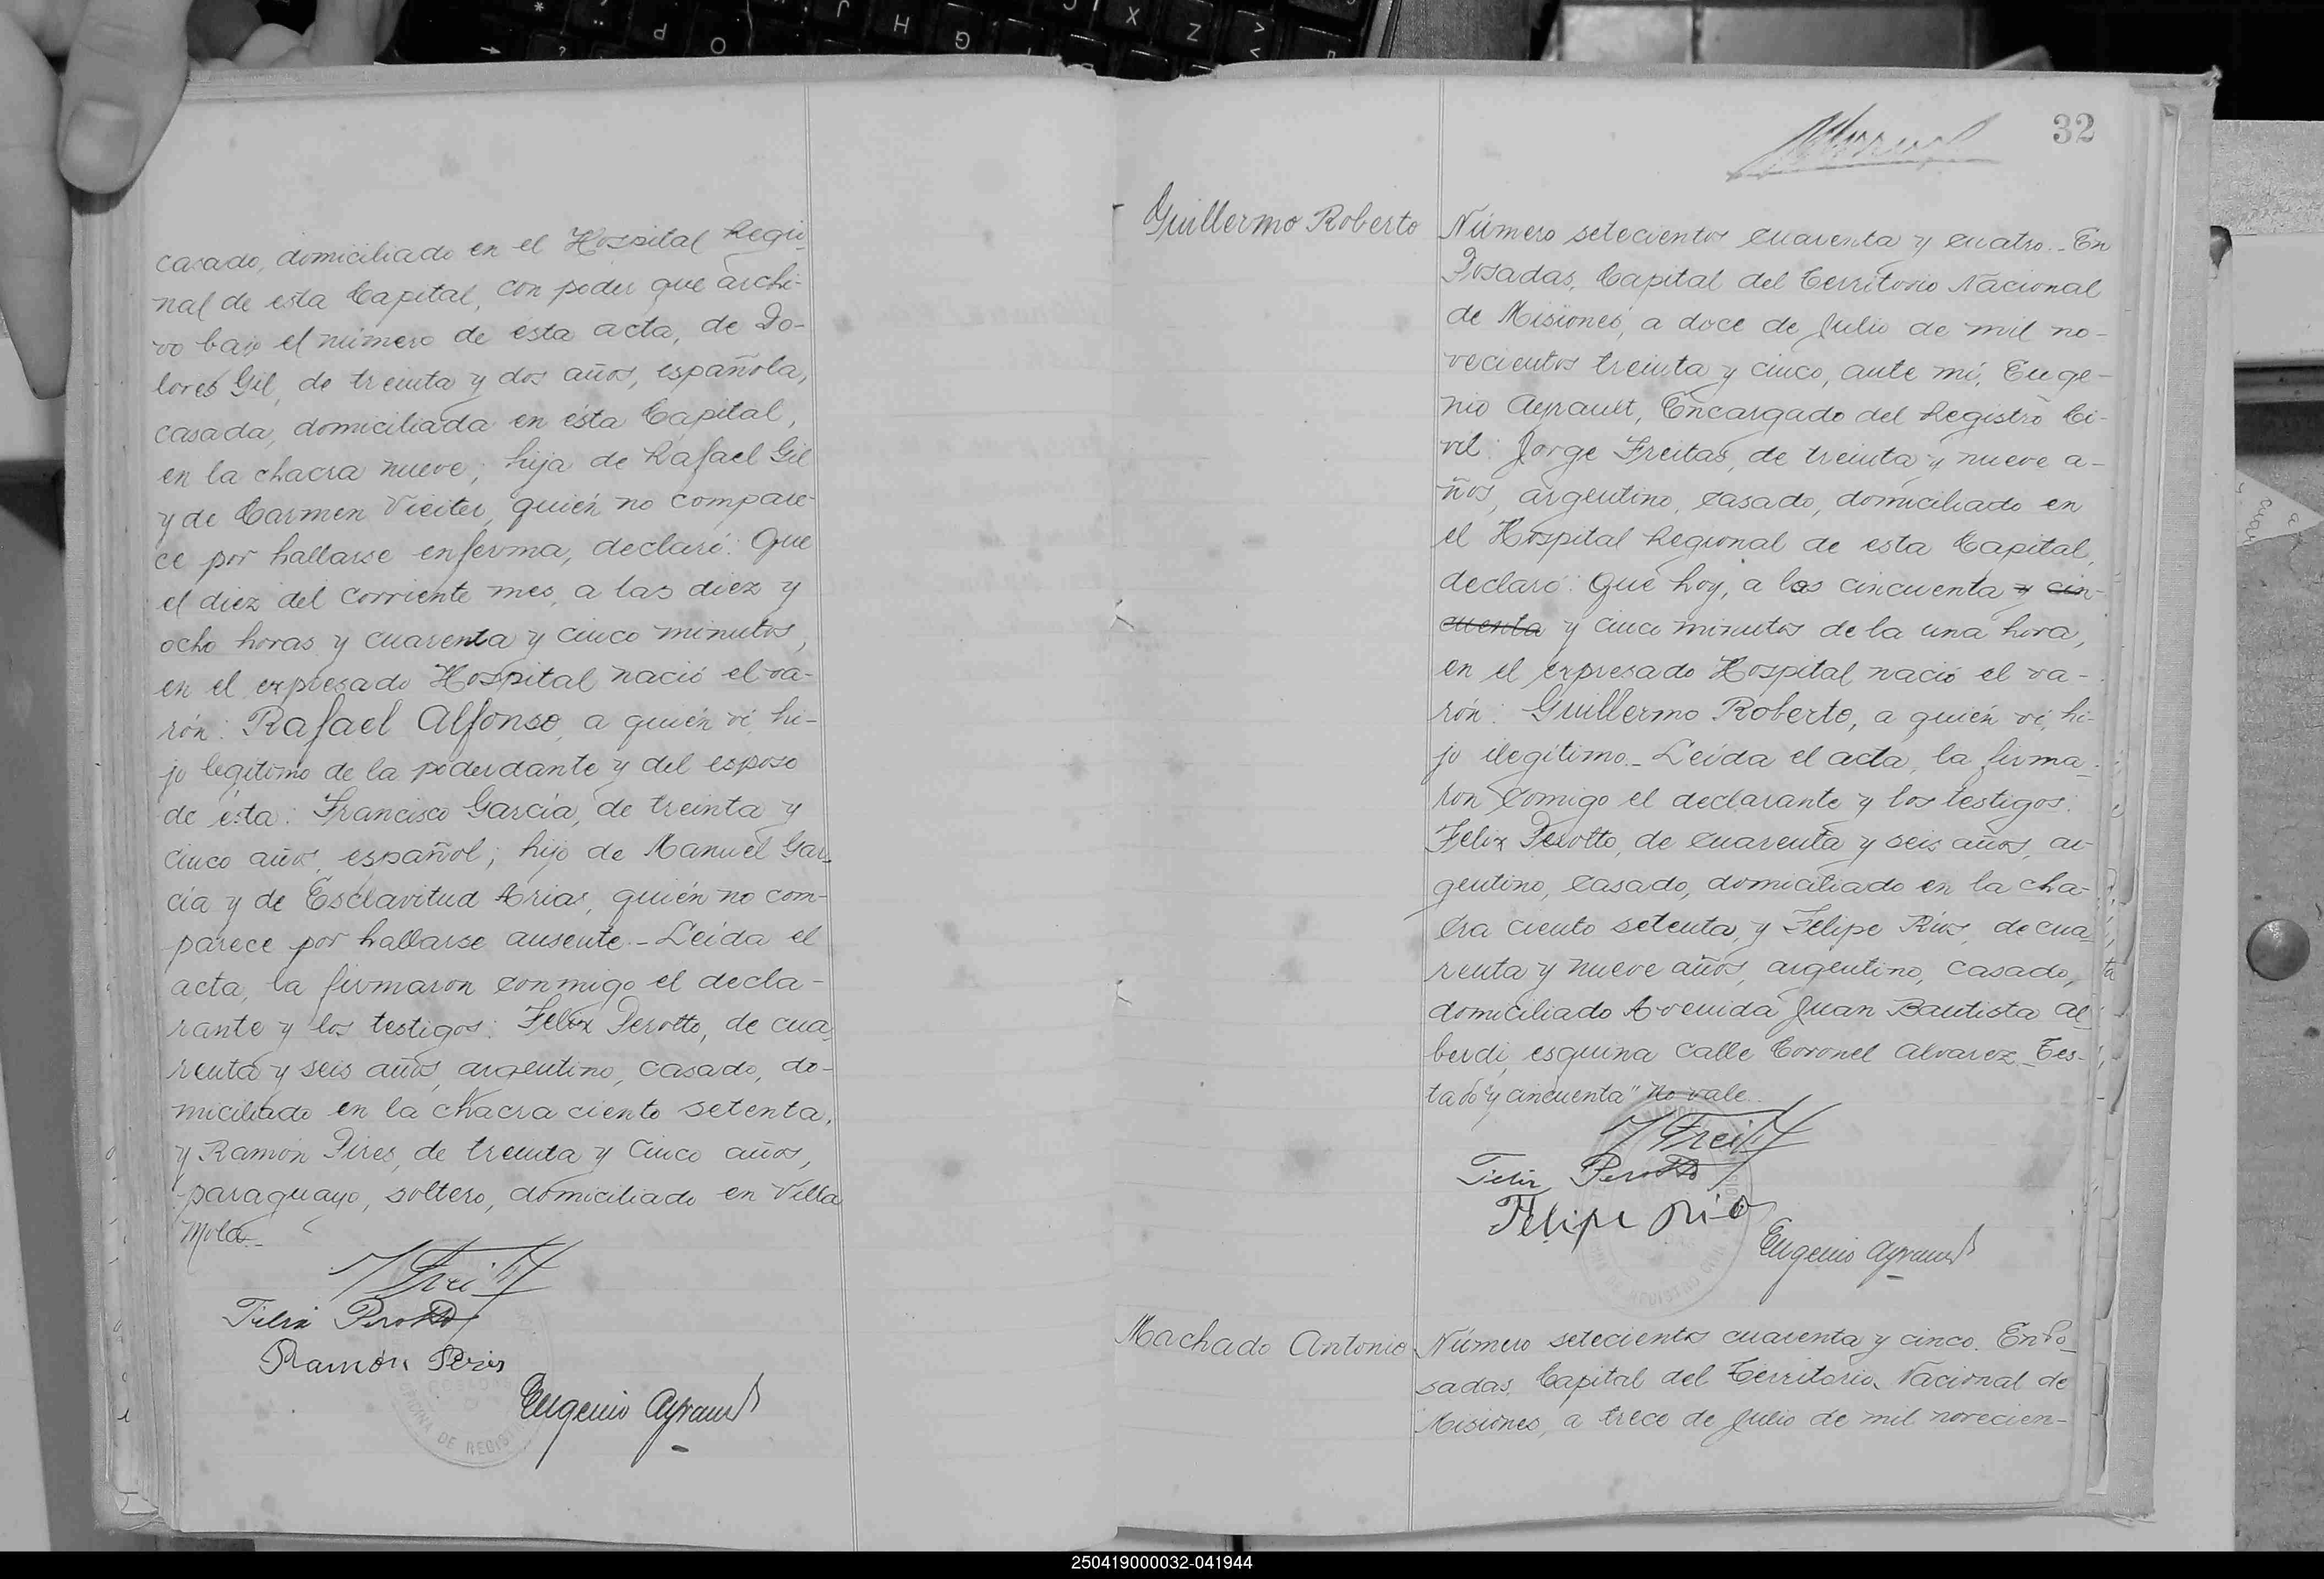 casado, domiciliado en el Hospital Regio
nal de esta Capital, con poder que archi-
vo bajo el número de esta acta, de Do-
lores Gil, de treinta y dos años, española,
casada, domiciliada en ésta Capital,
en la chacra nueve; hija de Rafael Gil
y de Carmen Vieites, quién no compare-
ce por hallarse enferma, declaró: Que
el diez del corriente mes, a las diez y
ocho horas y cuarenta y cinco minutos,
en el expresado Hospital nació el va-
rón: Rafael Alfonso, a quién ví, hi-
jo legítimo de la poderdante y del esposo
de ésta: Francisco García, de treinta y
cinco años, español; hijo de Manuel Gar-
cía y de Esclavitud Arias, quién no com-
parece por hallarse ausente.- Leída el
acta, la firmaron conmigo el decla-
rante y los testigos: Felix Perotto, de cua-
renta y seis años, argentino, casado, do-
miciliado en la chacra ciento setenta,
y Ramón Pires, de treinta y cinco años,
paraguayo, soltero, domiciliado en Villa
Mola.-
J Freitas
Felix Perotto
Ramón Peris
Eugenio Ayrault
OFICINA DE REGIST
32
Guillermo Roberto
Número setecientos cuarenta y cuatro.- En
Posadas, Capital del Territorio Nacional
de Misiones, a doce de Julio de mil no-
vecientos treinta y cinco, ante mí, Euge-
nio Ayrault, Encargado del Registro Ci-
vil: Jorge Freitas, de treinta y nueve a-
ños, argentino, casado, domiciliado en
el Hospital Regional de esta Capital,
declaró: Que hoy, a los cincuenta y cin-
cuenta y cinco minutos de la una hora,
en el expresado Hospital nació el va-
rón: Guillermo Roberto, a quién ví, hi-
jo ilegítimo.- Leída el acta, la firma-
ron comigo el declarante y los testigos:
Felix Perotto, de cuarenta y seis años, ar-
gentino, casado, domiciliado en la cha-
cra ciento setenta, y Felipe Ríos, de cua-
renta y nueve años, argentino, casado,
domiciliado Avenida Juan Bautista Al-
berdi, esquina calle Coronel Alvarez.- Tes-
tado "y cincuenta" no vale.-
J Freitas
Felix Perotto
Felipe Rio
Eugenio Ayrault
Machado Antonio
Número setecientos cuarenta y cinco. En Po-
sadas, Capital del Territorio Nacional de
Misiones, a trece de Julio de mil novecien-
250419000032-041944